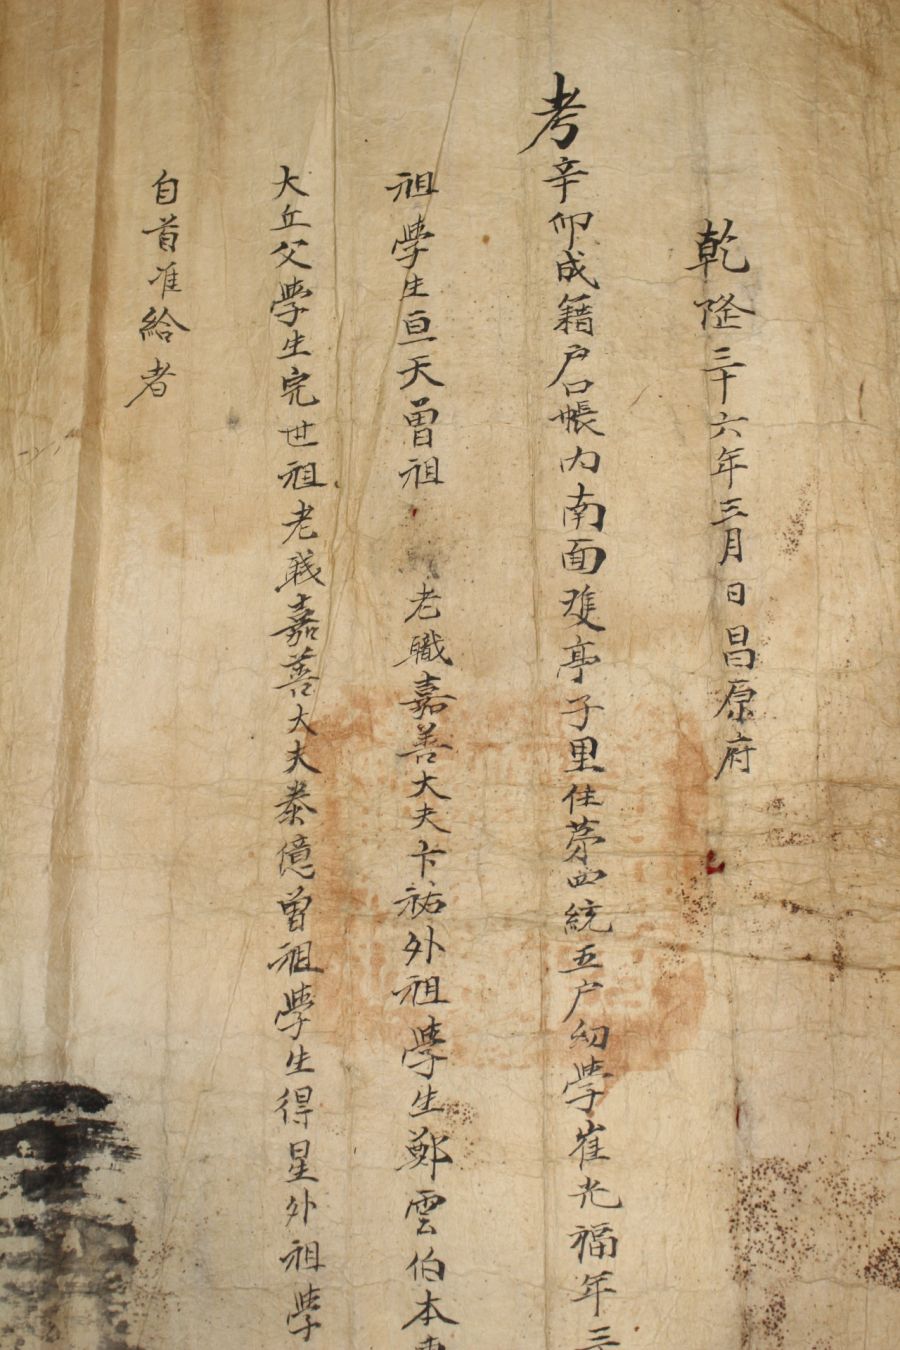 乾隆三十六年三月日昌原府
考辛卯成籍户口帳内南面雙亭子里住苐四統五户幼學崔光福年三
祖學生亘天曾祖 老職嘉善大夫卞祐外祖學生鄭雲伯本
大丘父學生完世祖老職嘉善大夫泰億曾祖學生得星外祖學
自首准給者